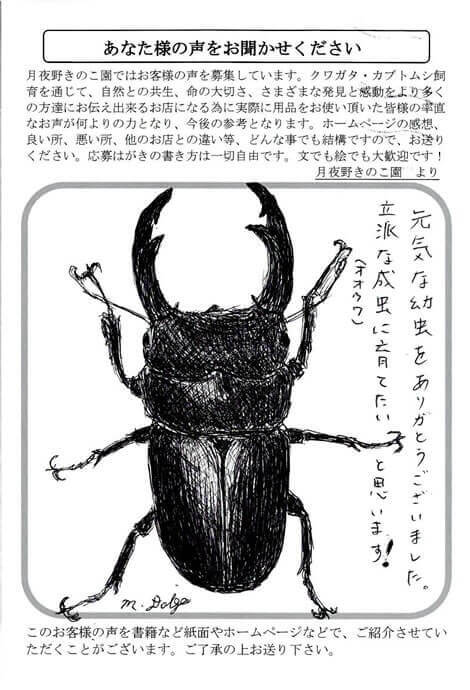 あなた様の声をお聞かせください
月夜野きのこ園ではお客様の声を募集しています。クワガタ・カブトムシ飼
育を通じて、自然との共生、命の大切さ、さまざまな発見と感動をより多く
の方達にお伝え出来るお店になる為に実際に用品をお使い頂いた皆様の率直
なお声が何よりの力となり、今後の参考となります。ホームページの感想、
良い所、悪い所、他のお店との違い等、どんな事でも結構ですので、お送り
ください。応募はがきの書き方は一切自由です。文でも絵でも大歓迎です！
月夜野きのこ園　より
元気な幼虫をありがとうございました。
立派な成虫に育てたいと思います!
(オオクワ)
このお客様の声を書籍など紙面やホームページなどで、ご紹介させてい
ただくことがございます。ご了承の上お送り下さい。